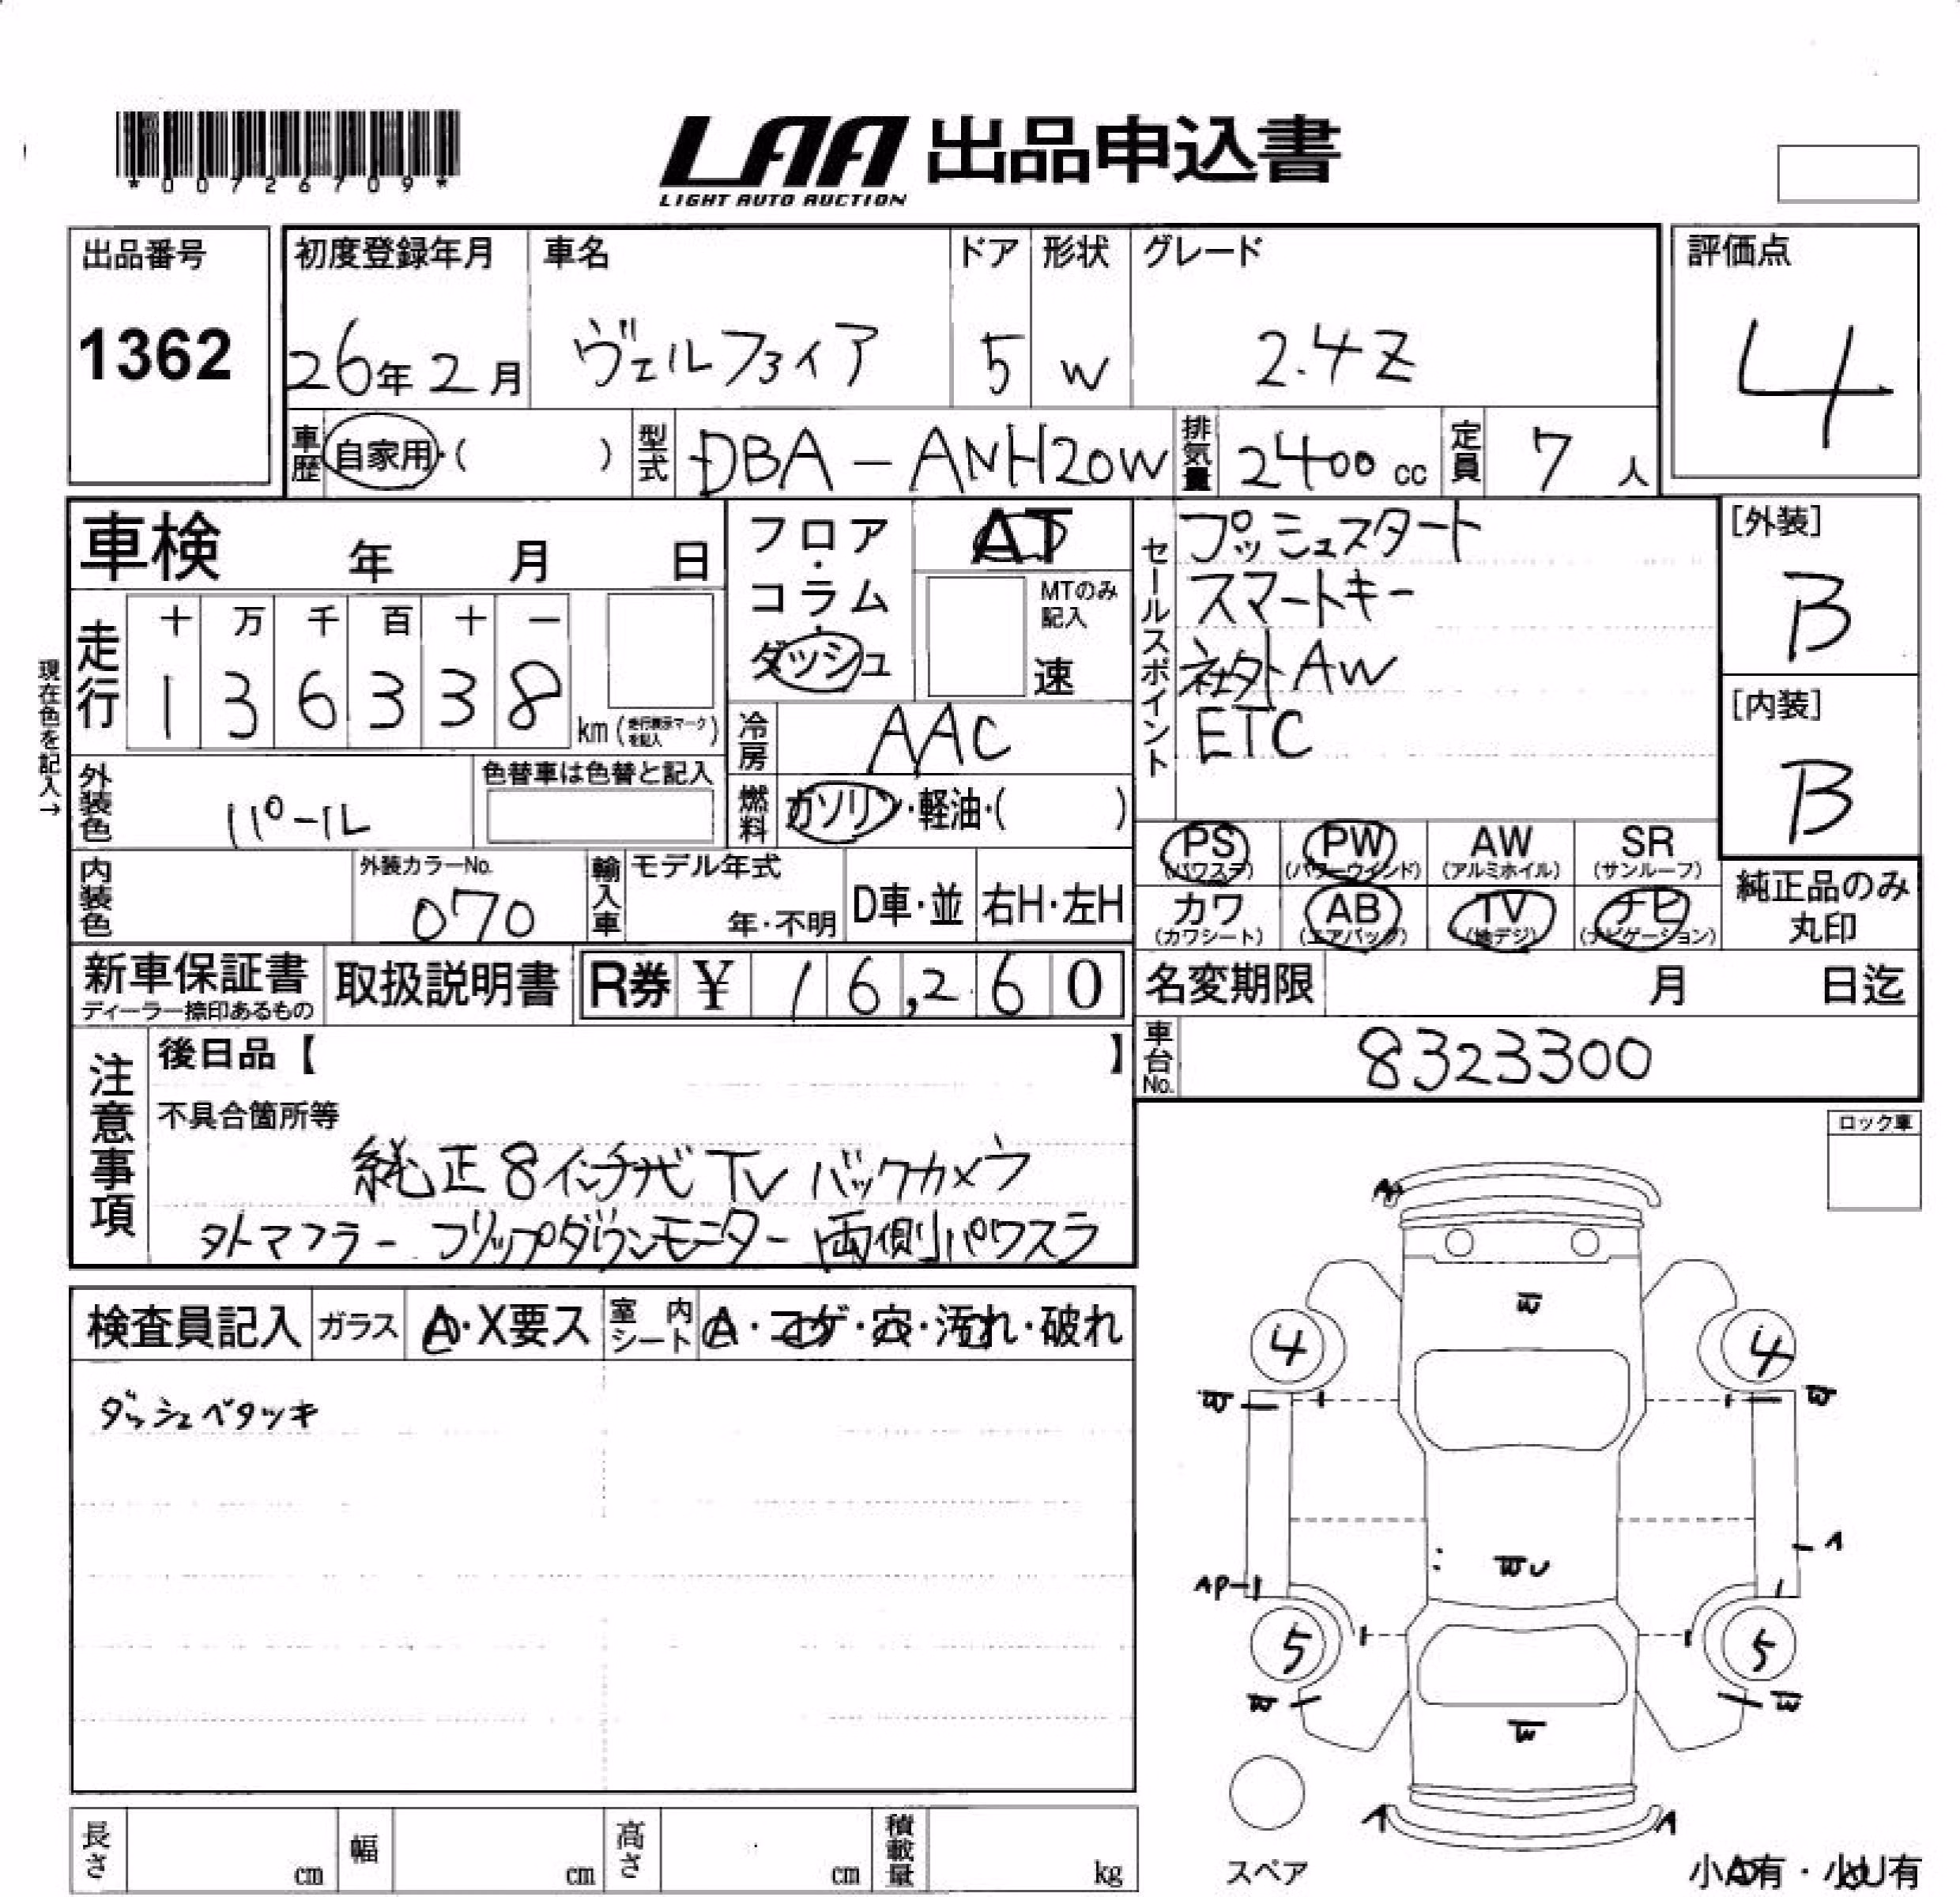 *00726709*
LAA 出品申込書
LIGHT AUTO AUCTION
出品番号
1362
初度登録年月 車名 ドア 形状 グレード
26年2月 ヴェルファイア 5 W 2.4Z
評価点
4
車歴 自家用・( ) 型式 DBA-ANH20W 排気量 2400cc 定員 7人
車検 年 月 日
フロア・コラム・ダッシュ
AT
MTのみ記入
速
セールスポイント
プッシュスタート
スマートキー
社外AW
ETC
[外装]
B
[内装]
B
現在色を記入→
走行 十 万 千 百 十 一
1 3 6 3 3 8 km (走行表示マークを記入)
冷房 AAC
外装色 パール
色替車は色替と記入
燃料 ガソリン・軽油・( )
PS (パワステ) PW (パワーウインド) AW (アルミホイル) SR (サンルーフ)
カワ (カワシート) AB (エアバッグ) TV (地デジ) ナビ (ナビゲーション)
純正品のみ丸印
内装色 外装カラーNo. 070
輸入車 モデル年式 年・不明 D車・並 右H・左H
新車保証書
ディーラー捺印あるもの
取扱説明書
R券 ¥ 16,260
名変期限 月 日迄
車台No. 8323300
注意事項
後日品【 】
不具合箇所等
純正8インチナビ TV バックカメラ
外マフラー フリップダウンモニター 両側パワスラ
ロック車
検査員記入 ガラス A・X要ス 室内シート A・コゲ・穴・汚れ・破れ
ダッシュベタツキ
4 4
A
AP-1
5 5
A A
スペア
小A有・小U有
長さ cm 幅 cm 高さ cm 積載量 kg